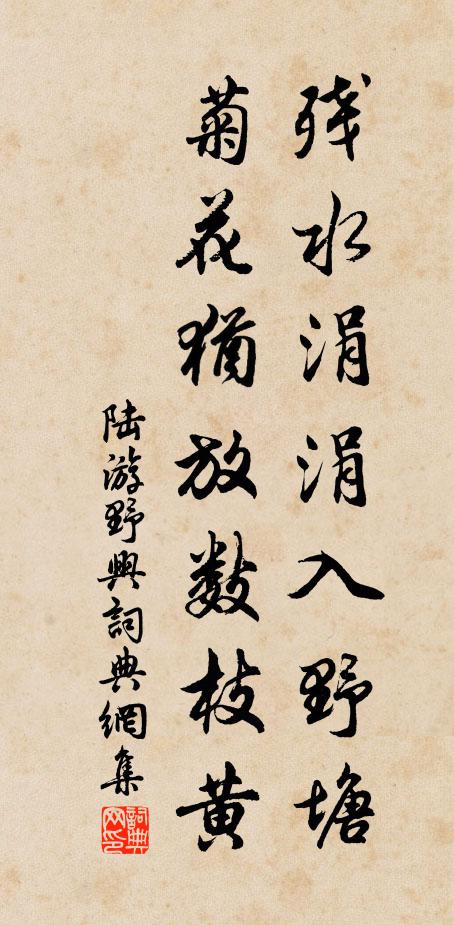 残水涓涓入野塘
菊花犹放数枝黄
陆游野興詞典網集
詞典网印